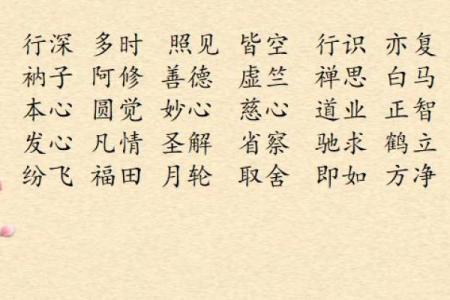 行深 多时 照见 皆空 行识 亦复
衲子 阿修 善德 虚竺 禅思 白马
本心 圆觉 妙心 慈心 道业 正智
发心 凡情 圣解 省察 驰求 鹤立
纷飞 福田 月轮 取舍 即如 方净